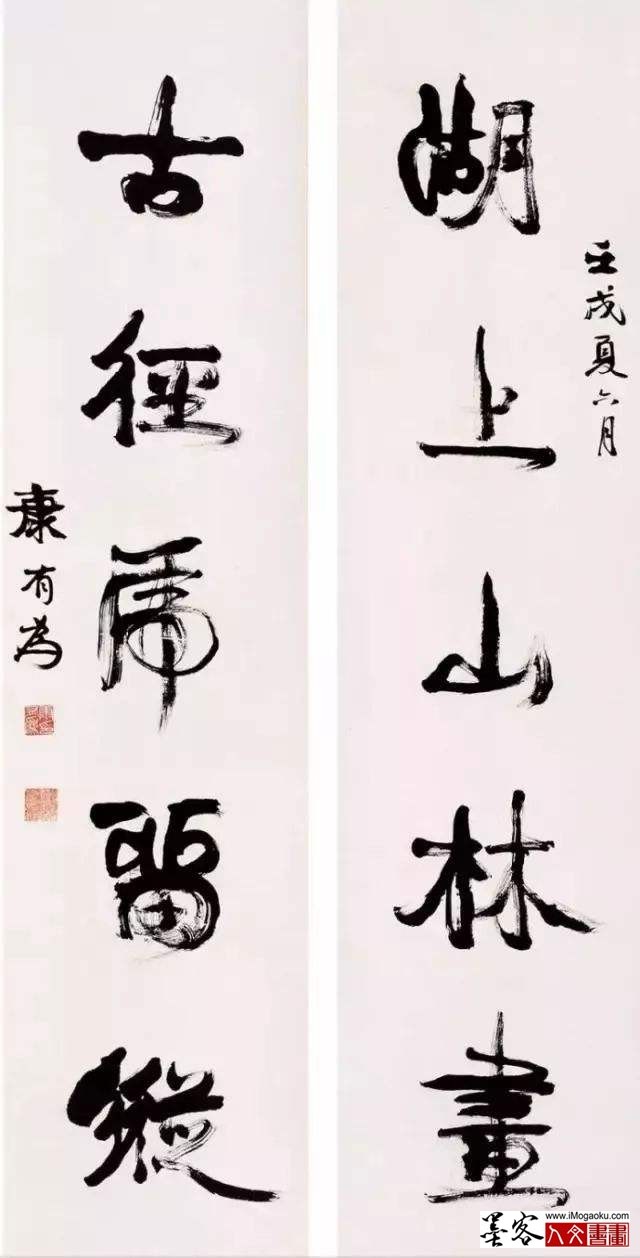 壬戌夏六月
湖上山林畫
古徑虎留蹤
康有為
墨客
www.iMogaoku.com
人文書畫